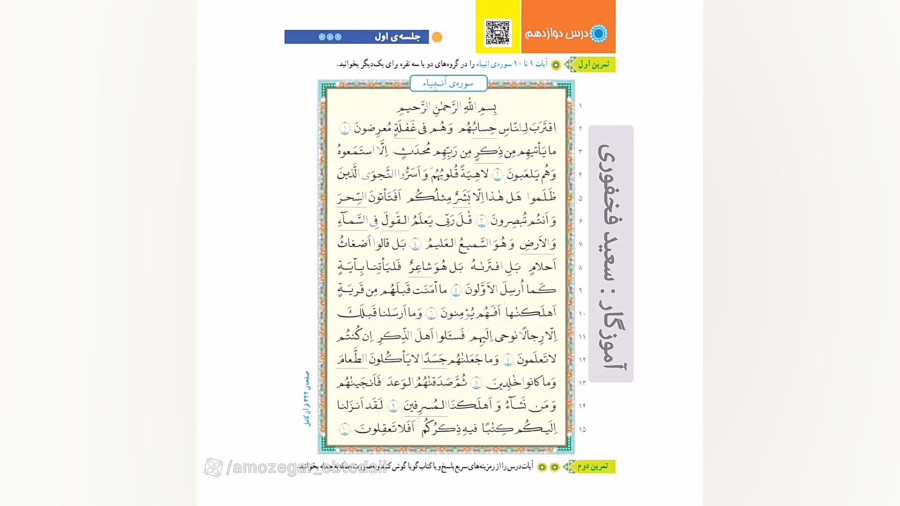 درس دوازدهم
جلسه‌ی اول
تمرین اول
آیات ۱ تا ۱۰ سوره‌ی انبیاء را در گروه‌های دو یا سه نفره برای یک‌دیگر بخوانید.
سوره‌ی اَنبیاء
۱ بِسمِ اللّٰهِ الرَّحمٰنِ الرَّحیمِ
۲ اِقتَرَبَ لِلنّاسِ حِسابُهُم وَ هُم فی غَفلَةٍ مُعرِضونَ ۱
۳ ما یَأتیهِم مِن ذِکرٍ مِن رَبِّهِم مُحدَثٍ اِلَّا استَمَعوهُ
۴ وَ هُم یَلعَبونَ ۲ لاهِیَةً قُلوبُهُم وَ اَسَرُّوا النَّجوَی الَّذینَ
۵ ظَلَموا هَل هٰذا اِلّا بَشَرٌ مِثلُکُم اَفَتَأتونَ السِّحرَ
۶ وَ اَنتُم تُبصِرونَ ۳ قُل رَبّی یَعلَمُ القَولَ فِی السَّماءِ
۷ وَ الاَرضِ وَ هُوَ السَّمیعُ العَلیمُ ۴ بَل قالوا اَضغاثُ
۸ اَحلامٍ بَلِ افتَرٰىهُ بَل هُوَ شاعِرٌ فَلیَأتِنا بِآیَةٍ
۹ کَما اُرسِلَ الاَوَّلونَ ۵ ما آمَنَت قَبلَهُم مِن قَریَةٍ
۱۰ اَهلَکنٰها اَفَهُم یُؤمِنونَ ۶ وَ ما اَرسَلنا قَبلَکَ
۱۱ اِلّا رِجالًا نوحی اِلَیهِم فَسئَلوا اَهلَ الذِّکرِ اِن کُنتُم
۱۲ لا تَعلَمونَ ۷ وَ ما جَعَلنٰهُم جَسَدًا لا یَأکُلونَ الطَّعامَ
۱۳ وَ ما کانوا خٰلِدینَ ۸ ثُمَّ صَدَقنٰهُمُ الوَعدَ فَاَنجَینٰهُم
۱۴ وَ مَن نَشاءُ وَ اَهلَکنَا المُسرِفینَ ۹ لَقَد اَنزَلنا
۱۵ اِلَیکُم کِتٰبًا فیهِ ذِکرُکُم اَفَلا تَعقِلونَ ۱۰
صفحه‌ی ۳۲۲ قرآن کامل
آموزگار : سعید فخفوری
تمرین دوم
آیات درس را از رمزینه‌های سریع پاسخ و یا کتاب گویا گوش کنید و به صورت
/amozegar_ebtedaii